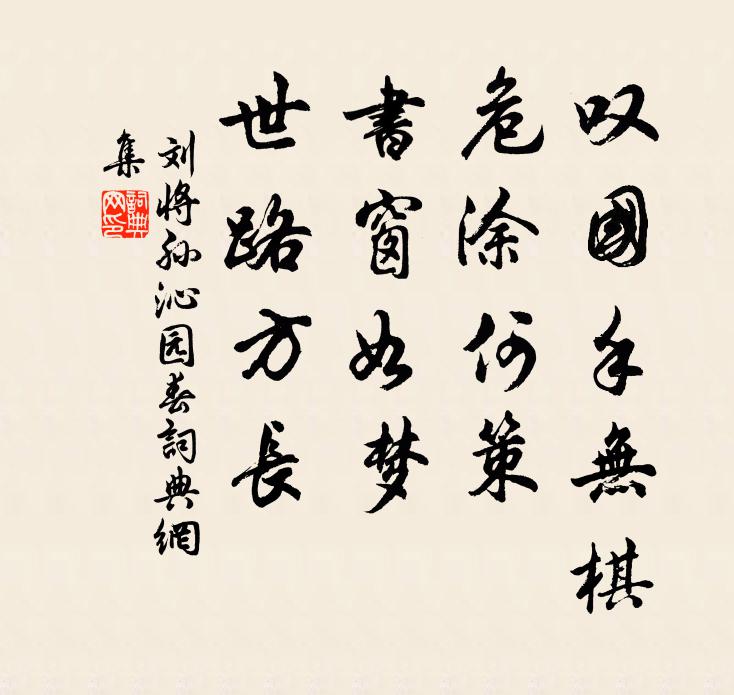 叹國手無棋
危涂何策
書窗如梦
世路方長
刘将孙沁园春詞典網
集
詞典網印